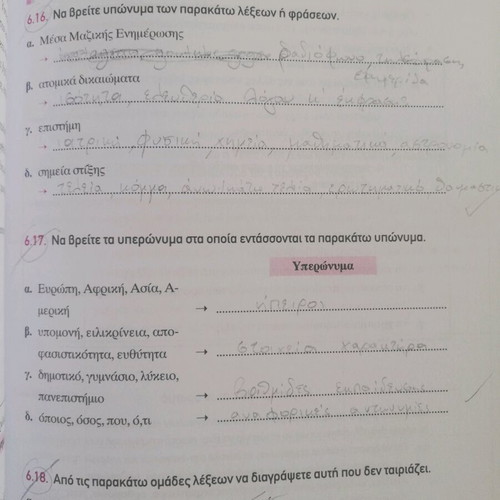 6.16. Να βρείτε υπώνυμα των παρακάτω λέξεων ή φράσεων.
α. Μέσα Μαζικής Ενημέρωσης
→ ραδιόφωνο, τηλεόραση,
εφημερίδα
β. ατομικά δικαιώματα
→ ισότητα, ελευθερία λόγου κ έκφρασης
γ. επιστήμη
→ ιατρική, φυσική, χημεία, μαθηματικά, αστρονομία,
δ. σημεία στίξης
→ τελεία, κόμμα, άνω κάτω τελεία ερωτηματικό θαυμαστι
6.17. Να βρείτε τα υπερώνυμα στα οποία εντάσσονται τα παρακάτω υπώνυμα.
Υπερώνυμα
α. Ευρώπη, Αφρική, Ασία, Α-
μερική → ήπειροι
β. υπομονή, ειλικρίνεια, απο-
φασιστικότητα, ευθύτητα → στοιχεία χαρακτήρα
γ. δημοτικό, γυμνάσιο, λύκειο,
πανεπιστήμιο → βαθμίδες εκπαίδευσης
δ. όποιος, όσος, που, ό,τι → αναφορικές αντωνυμίες
6.18. Από τις παρακάτω ομάδες λέξεων να διαγράψετε αυτή που δεν ταιριάζει.